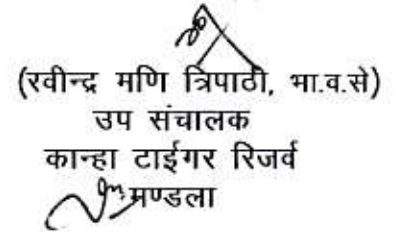 (रवीन्द्र मणि त्रिपाठी, भा.व.से)
उप संचालक
कान्हा टाईगर रिजर्व
मण्डला